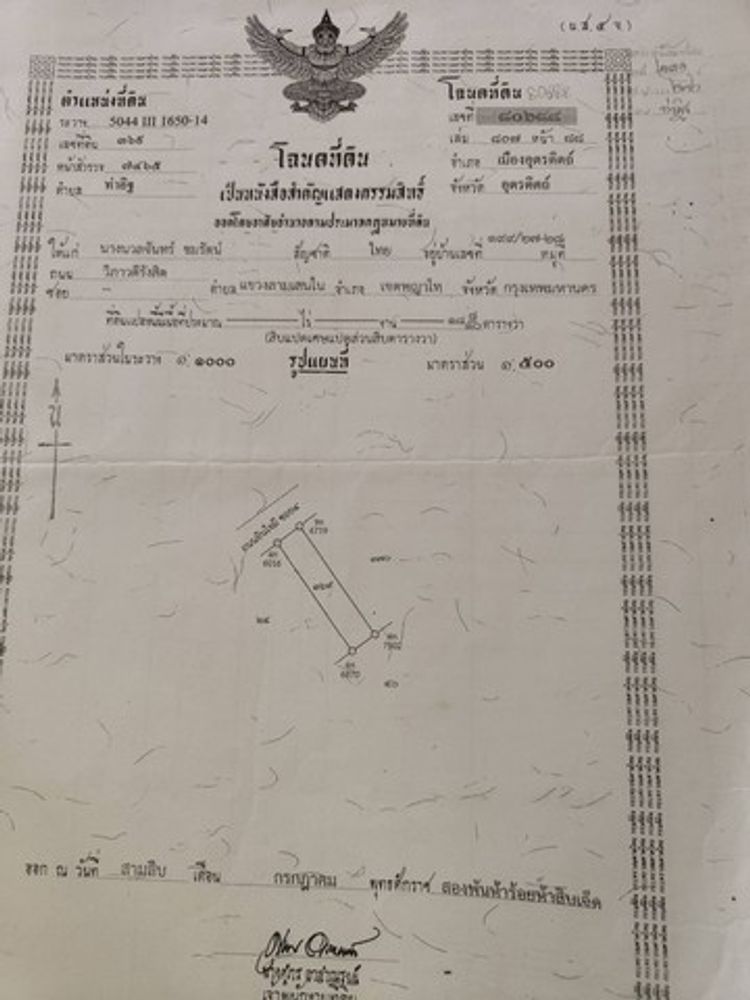 (น.ส.๔ จ.)
ตำแหน่งที่ดิน
ระวาง 5044 III 1650-14
เลขที่ดิน ๓๖๕
หน้าสำรวจ ๗๔๖๕
ตำบล ท่าอิฐ
โฉนดที่ดิน
เป็นหนังสือสำคัญแสดงกรรมสิทธิ์
ออกโดยอาศัยอำนาจตามประมวลกฎหมายที่ดิน
โฉนดที่ดิน
เลขที่ ๘๐๖๘๔
เล่ม ๘๐๗ หน้า ๘๘
อำเภอ เมืองอุตรดิตถ์
จังหวัด อุตรดิตถ์
ให้แก่ นางนวลจันทร์ สัญชาติ ไทย อยู่บ้านเลขที่ ๑๙๙/๒๗-๒๘ หมู่ที่
ถนน วิภาวดีรังสิต
ซอย – ตำบล แขวงสามเสนใน อำเภอ เขตพญาไท จังหวัด กรุงเทพมหานคร
ที่ดินแปลงนี้มีเนื้อที่ประมาณ ไร่ งาน ตารางวา
(สิบแปดเศษแปดส่วนสิบตารางวา)
มาตราส่วนในระวาง ๑: ๑๐๐๐ รูปแผนที่ มาตราส่วน ๑: ๕๐๐
น
4739
6016
๓๖๕
๒๔
7502
6870
ออก ณ วันที่ สามสิบ เดือน กรกฎาคม พุทธศักราช สองพันห้าร้อยห้าสิบเจ็ด
เจ้าพนักงานที่ดิน